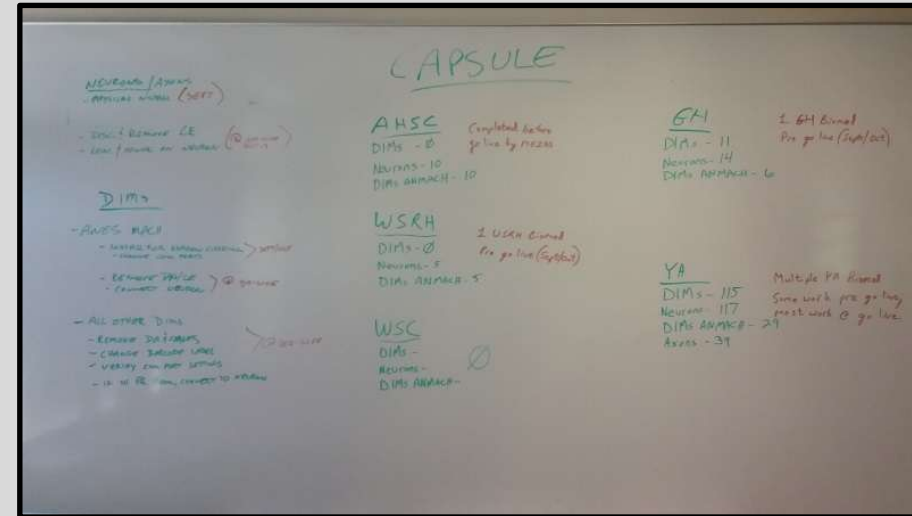 CAPSULE
NEURONS / AXONS
- PHYSICAL (SEPT)
- DISC / REMOVE CE
NEURON (@ GO-LIVE)
DIMs
- ANES MACH
@ GO-LIVE
- REMOVE
- CONNECT NEURON
- ALL OTHER DIMs
- REMOVE
- CHANGE BARCODE LABEL
- VERIFY COM PORT SETTINGS
CONNECT TO NEURON
@ GO-LIVE
AHSC
DIMs - Ø
Neurons - 10
DIMs ANMACH - 10
Completed before
go live by
WSRH
DIMs - Ø
Neurons - 5
DIMs ANMACH - 5
1 WSRH Biomed
Pre go live (Sept/Oct)
WSC
DIMs -
Neurons -
DIMs ANMACH -
Ø
GH
DIMs - 11
Neurons - 14
DIMs ANMACH - 6
1 GH Biomed
Pre go live (Sept/Oct)
YA
DIMs - 115
Neurons - 117
DIMs ANMACH - 29
Axons - 39
Multiple YA Biomed
Some work pre go live,
most work @ go live